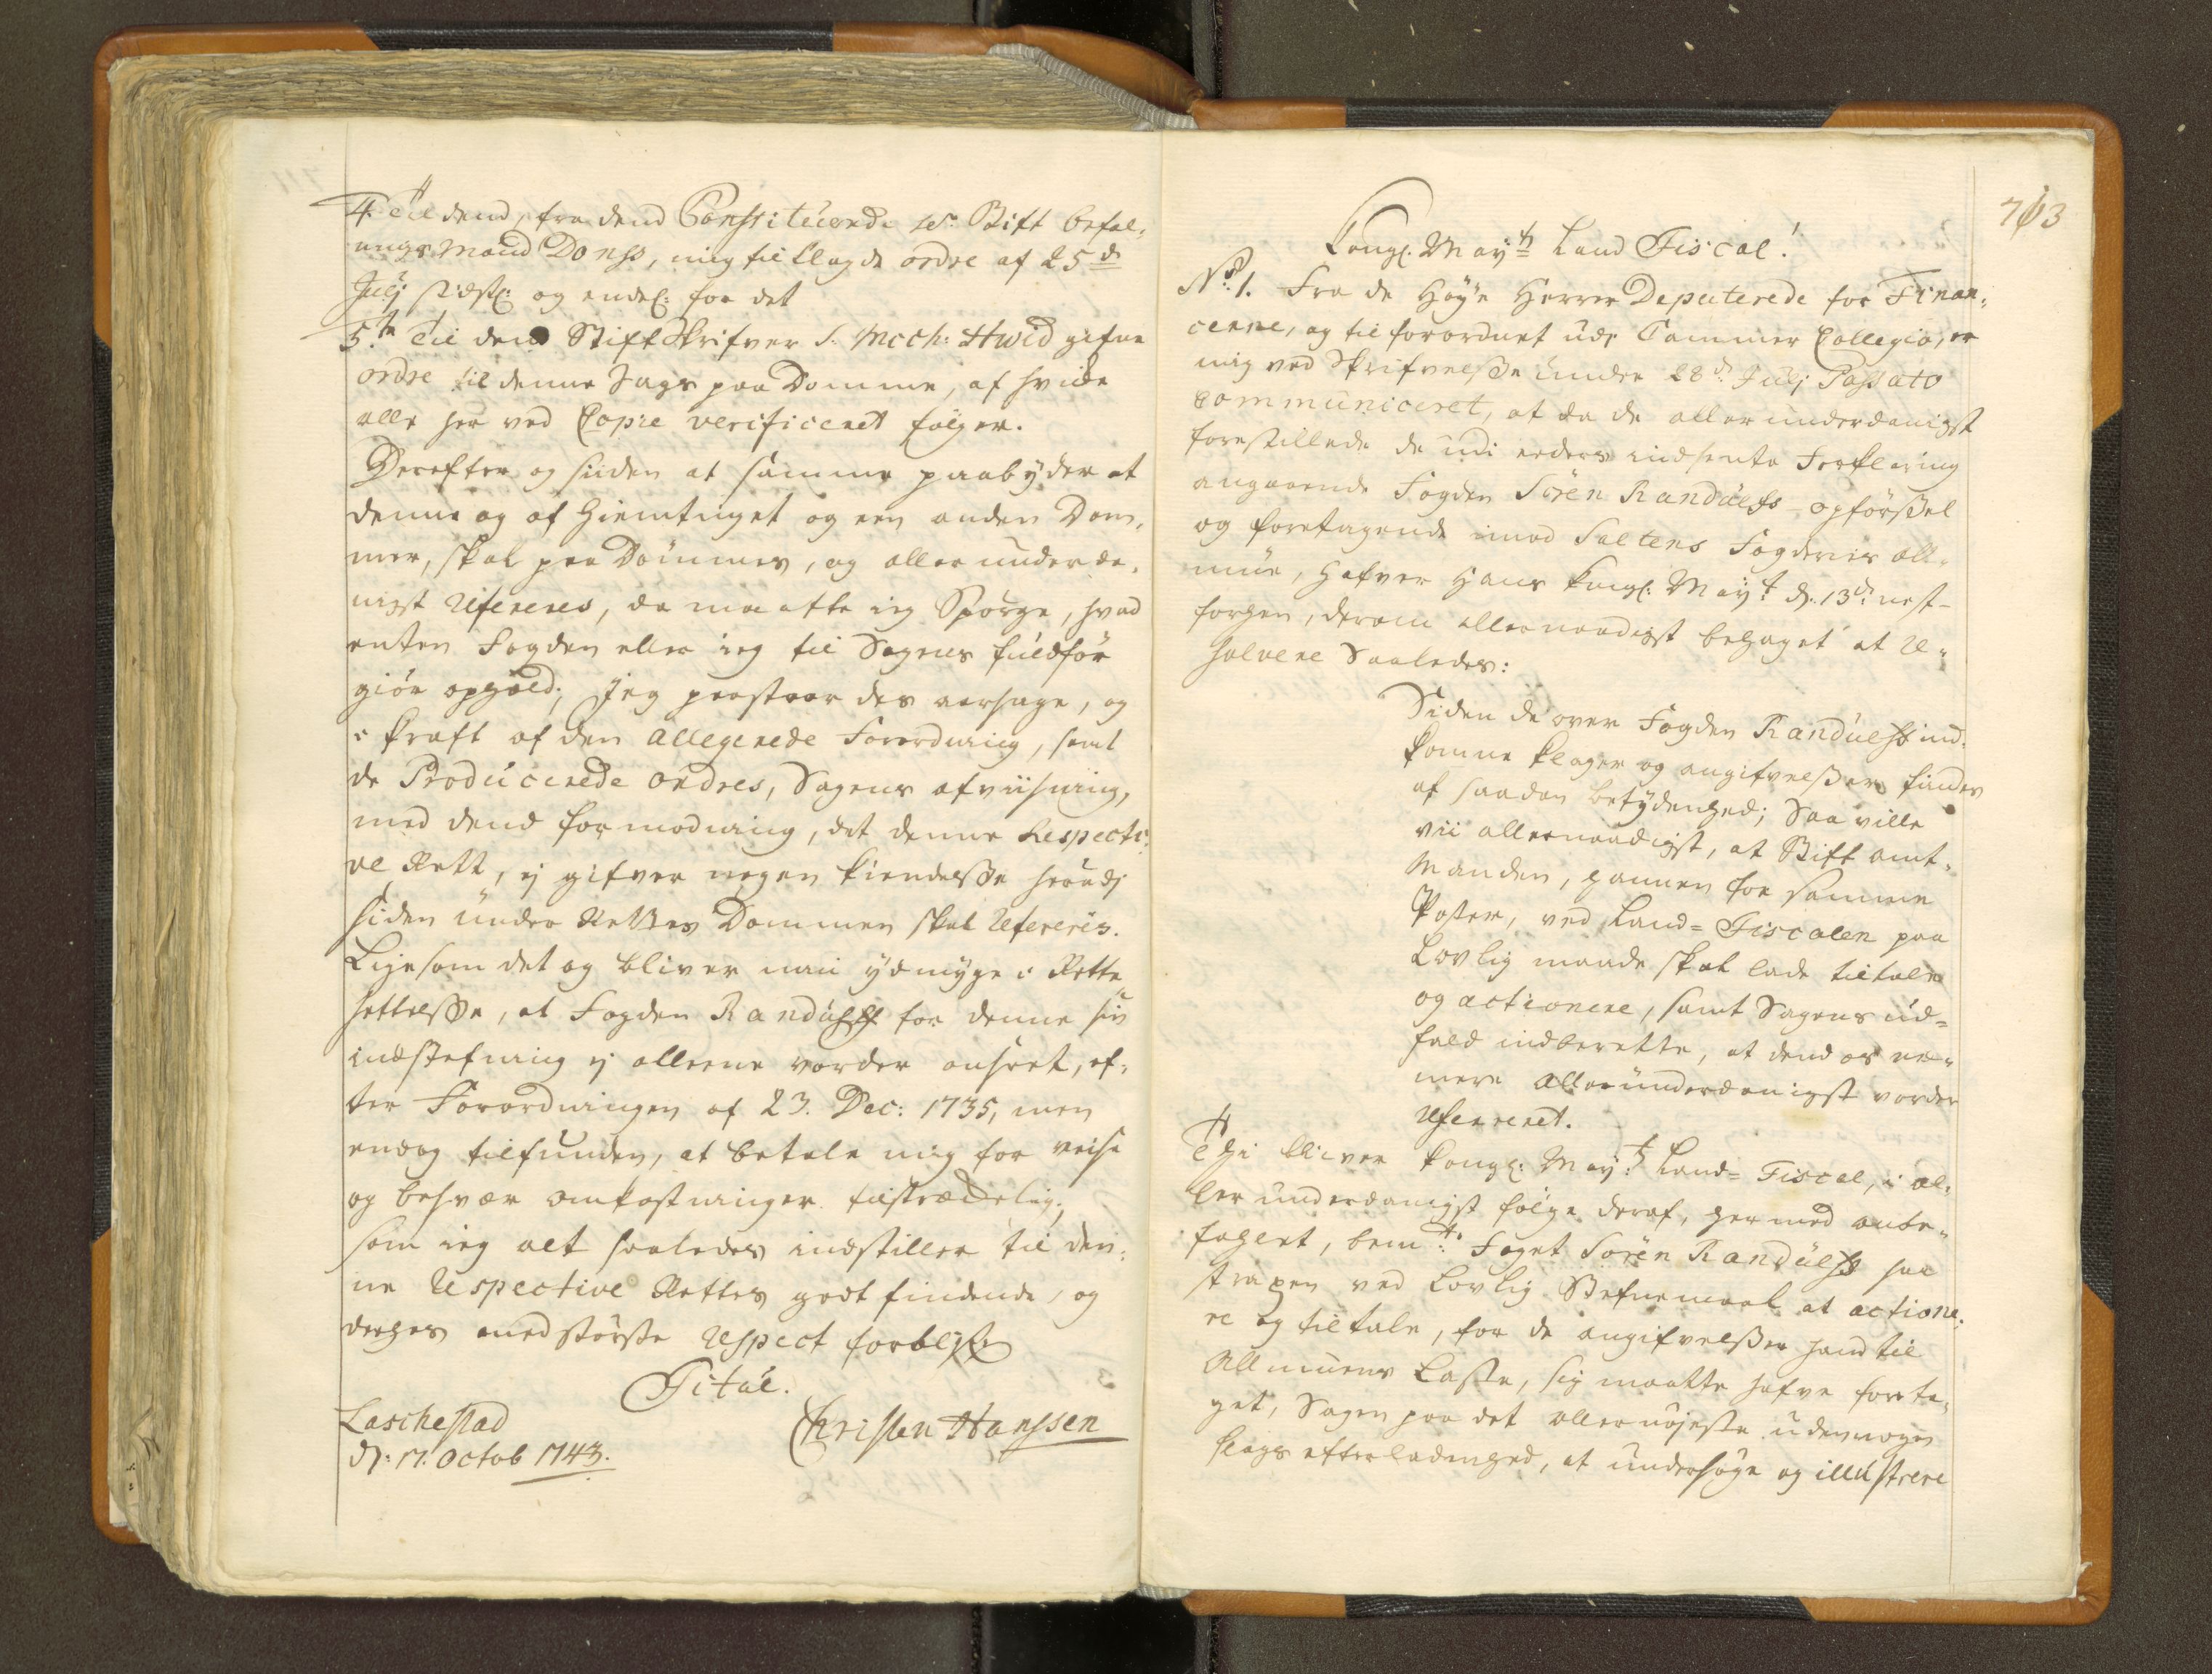 4. Til dend, fra dend Constituerede Hr: Stift befal¬
ungs Mand Donss, mig tillagde ordre af 25de
Julj sidstl: og endel: for det
5te Til den Stift Skrifver S. Mich: Hwid gifne
ordre til denne Sags paa Domme, af hvilke
alle her ved Copie verificeret følger.
Derefter og siiden at samme paabyder at
denne og af Hiemtinget og een anden Dom¬
mer, skal paa Dømmes, og aller underda¬
nigst Refereres, da maatte ieg Spørge, hvad
enten Fogden eller ieg til Sagens fuldfør
giør ophold; Jeg paastaar des aarsage, og
i kraft af den allegerede Forordning, samt
de Producerede Ordres, Sagens afviisning,
med dend formodning, det denne Respecti¬
ve Rett, ej gifver nogen kiendelsse herudj
siden under Rettes Dommen skal Refereris.
Ligesom det og bliver min ydmyge i Rette
settelsse, at Fogden Randulff for denne sin
indstefning ej alleene vorder anseet, ef¬
ter Forordningen af 23. Dec: 1735, men
endog tilfunden, at betale mig for reise
og besvær omkostninger tilstrækkelig;
som ieg alt saaledes indstiller til den¬
ne Respective Rettes godtfindende, og
derhos med største Respect forblifr
Titul.
Laschestad
d: 17. Octob 1743.
Christen Hanssen
713
Kongl: Mayts Land Fiscal!
No: 1. Fra de Høye Herrer Deputerede for Finan¬
cerne, og til forordnet udj Cammer Collegio, er
mig ved Skrifvelsse under 28de Julj Passato
communiceret, at da de allerunderdanigst
forestillede de udi eders indsente Forklaring
angaaende Fogden Sören Randulfs opførssel
og foretagende imod Saltens Fogderies all¬
mue, hafver Hans Kongl: Mayt d. 13de nest-
forhen, derom allernaadigst behaget at Re¬
solvere Saaledes:
Siden de over Fogden Randulfs ind¬
komne klager og angifvelsser findes
af saadan betydenhed; Saa ville
vii allernaadigst, at Stift amt¬
Manden, hannem for samme
Poster, ved Land= Fiscalen paa
Lovlig maade skal lade tiltale
og actionere, samt Sagens ud=
fald indberette, at dend os ner¬
mere allerunderdanigst vorder
Refereret.
Thi bliver Kongl: Mayts Land= Fiscal, i al¬
lerunderdanigst følge deraf, hermed anbe¬
falget, bemte: Foget Sören Randulfs saa
strax ved Lovlig Stefnemaal at actione¬
re og tiltale, for de angifvelsser hand til
Allmuens Laste, sig maatte hafve foreta¬
get, Sagen paa det allernøjeste uden nogen
slags efterladenhed, at undersøge og illustrere